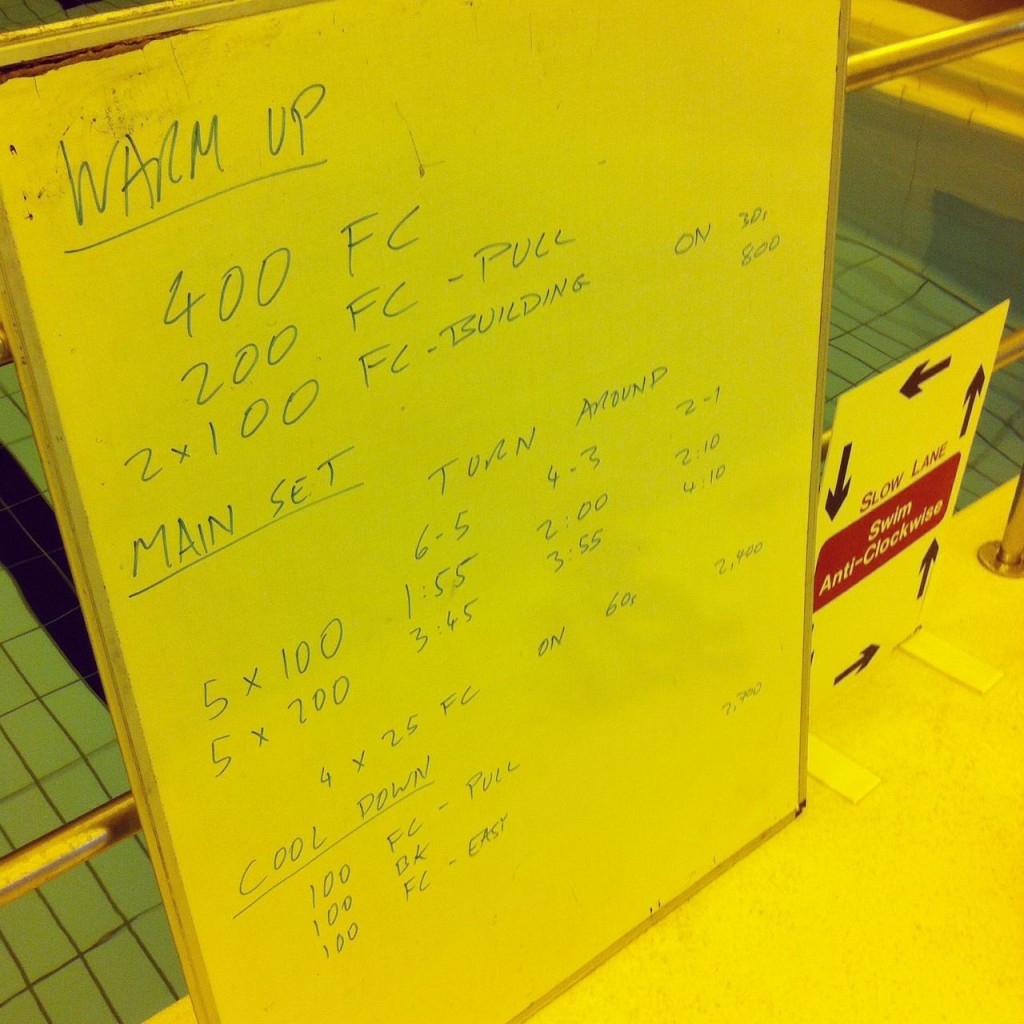 WARM UP
400 FC
200 FC - PULL
2 x 100 FC - BUILDING ON 30s
800
MAIN SET TURN AROUND
6-5 4-3 2-1
5 x 100 1:55 2:00 2:10
5 x 200 3:45 3:55 4:10
4 x 25 FC ON 60s
2,400
COOL DOWN
100 FC - PULL
100 BK
100 FC - EASY
2,700
SLOW LANE
Swim
Anti-Clockwise